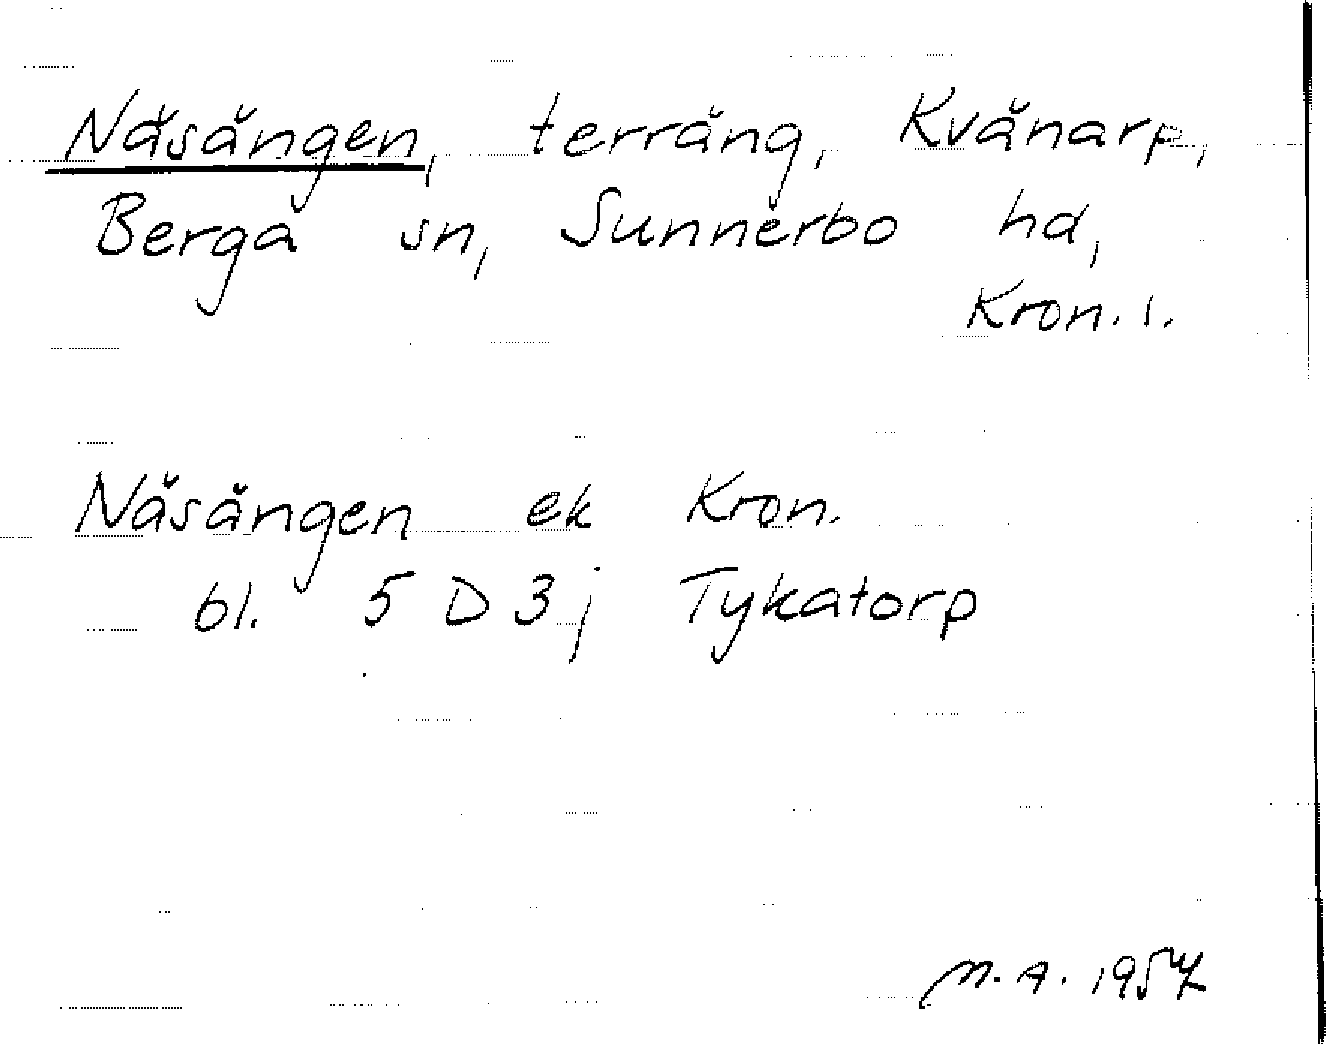 Näsängen, terräng, Kvänarp,
Berga sn, Sunnerbo hd,
Kron. l.
Näsängen ek Kron.
bl. 5 D 3j Tykatorp
M. A. 1957